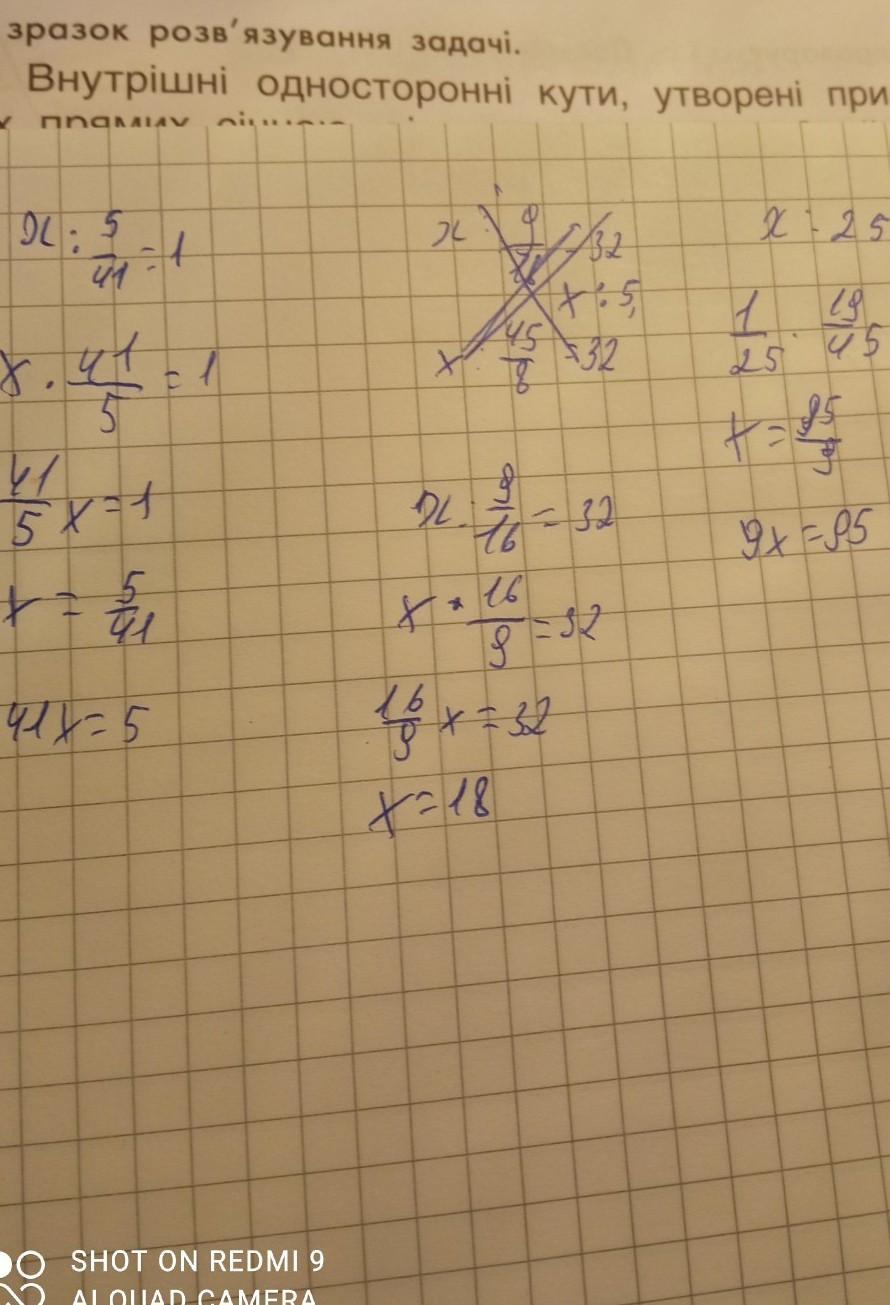 зразок розв'язування задачі.
Внутрішні односторонні кути, утворені при
x : 5/41 = 1
x · 41/5 = 1
41/5 x = 1
x = 5/41
41x = 5
x : 9/16 = 32
x : 5,
x · 45/8 = 32
x : 9/16 = 32
x · 16/9 = 32
16/9 x = 32
x = 18
x : 25
1/25 · 19/45
x = 95/9
9x = 95
SHOT ON REDMI 9
AI QUAD CAMERA